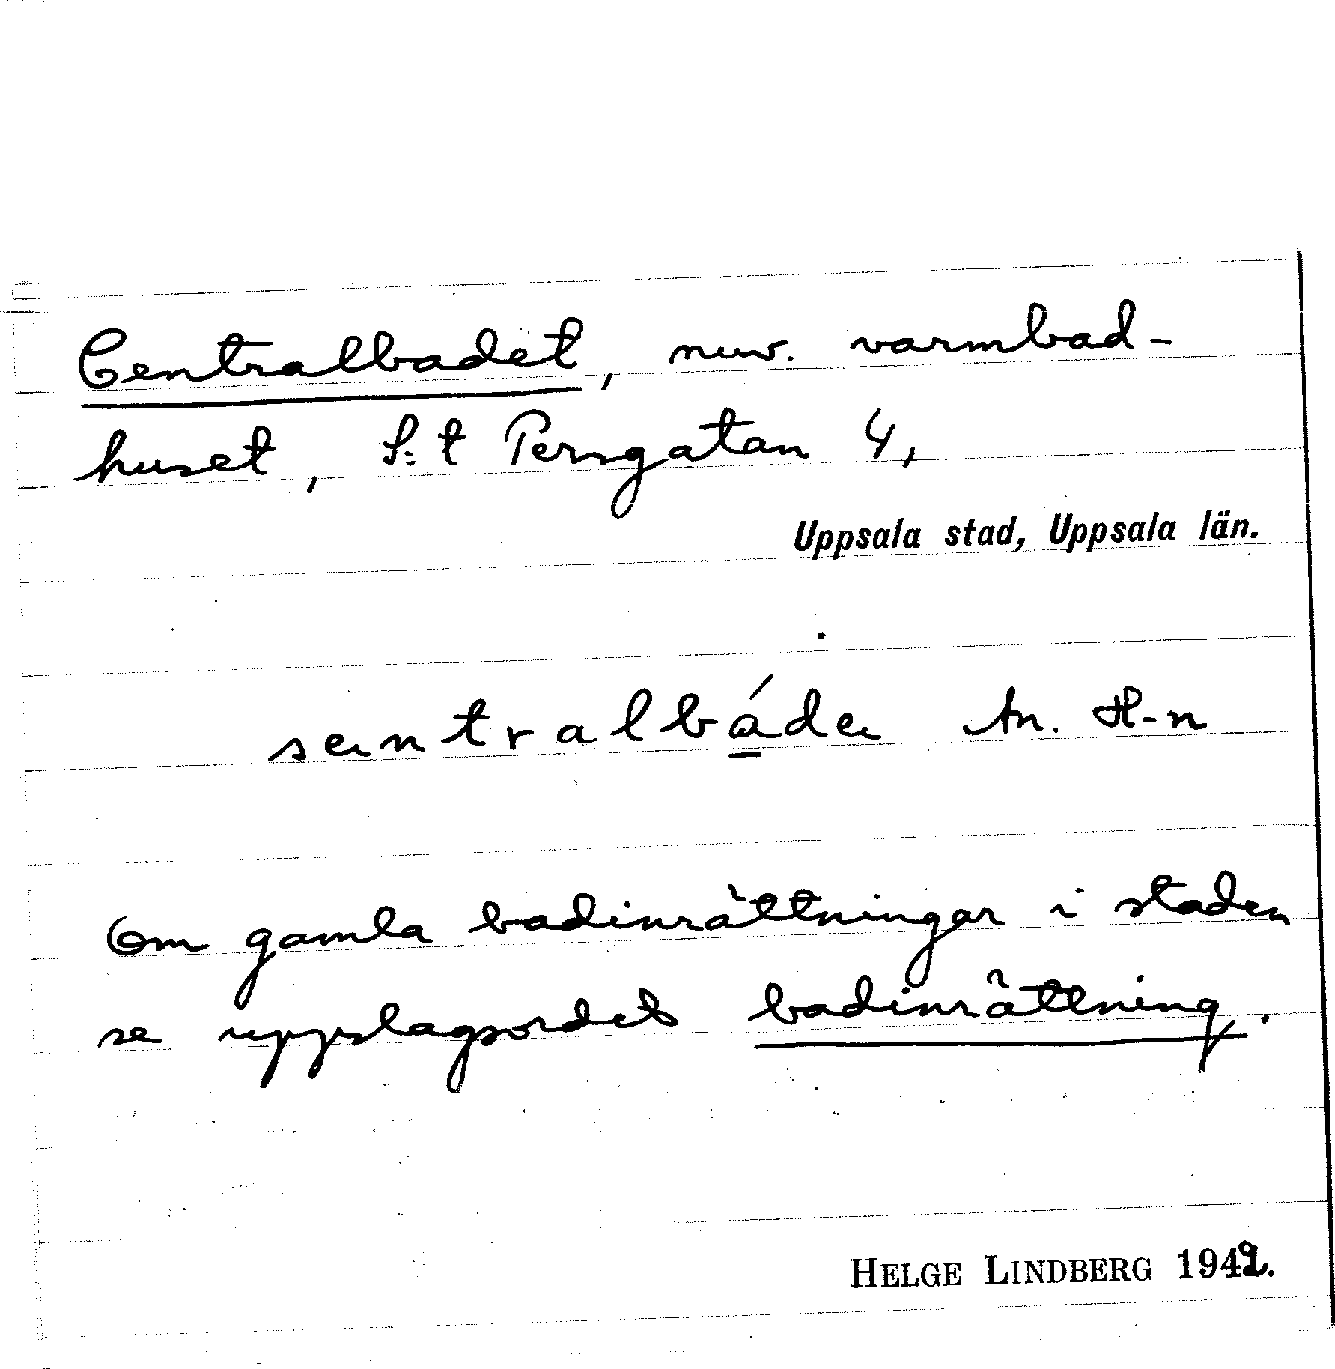 Centralbadet, nuv. varmbad-
huset, S:t Persgatan 4,
Uppsala stad, Uppsala län.
sentralbáde An. H-n
Om gamla badinrättningar i staden
se uppslagsordet badinrättning.
HELGE LINDBERG 1942.